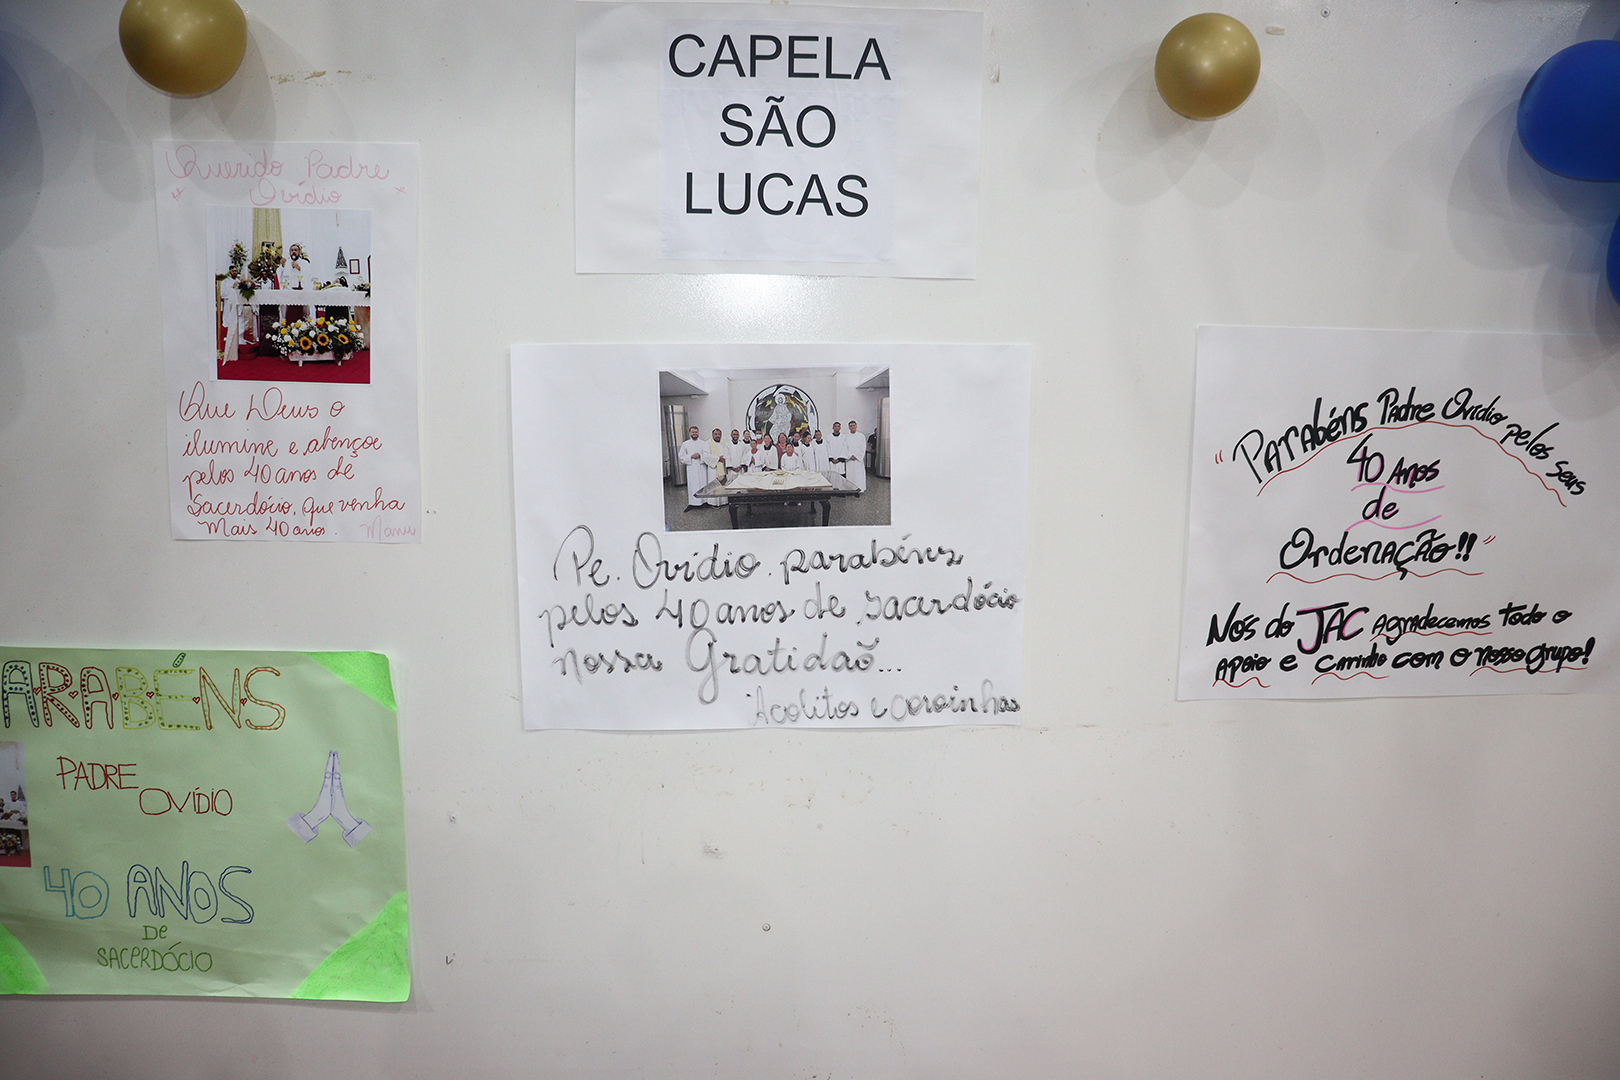 CAPELA
SÃO
LUCAS
Querido Padre
" Ovídio "
Que Deus o
ilumine e abençoe
pelos 40 anos de
Sacerdócio, que venha
Mais 40 anos.
Pe. Ovídio. parabéns
pelos 40 anos de sacerdócio
nossa Gratidaõ...
Acolitos e coroinhas
"Parabéns Padre Ovídio pelos seus
40 Anos
de
Ordenação!!"
Nos do JAC Agradecemos todo o
apoio e carinho com o nosso grupo!
ARABÉNS
PADRE
OVÍDIO
40 ANOS
De
SACERDÓCIO